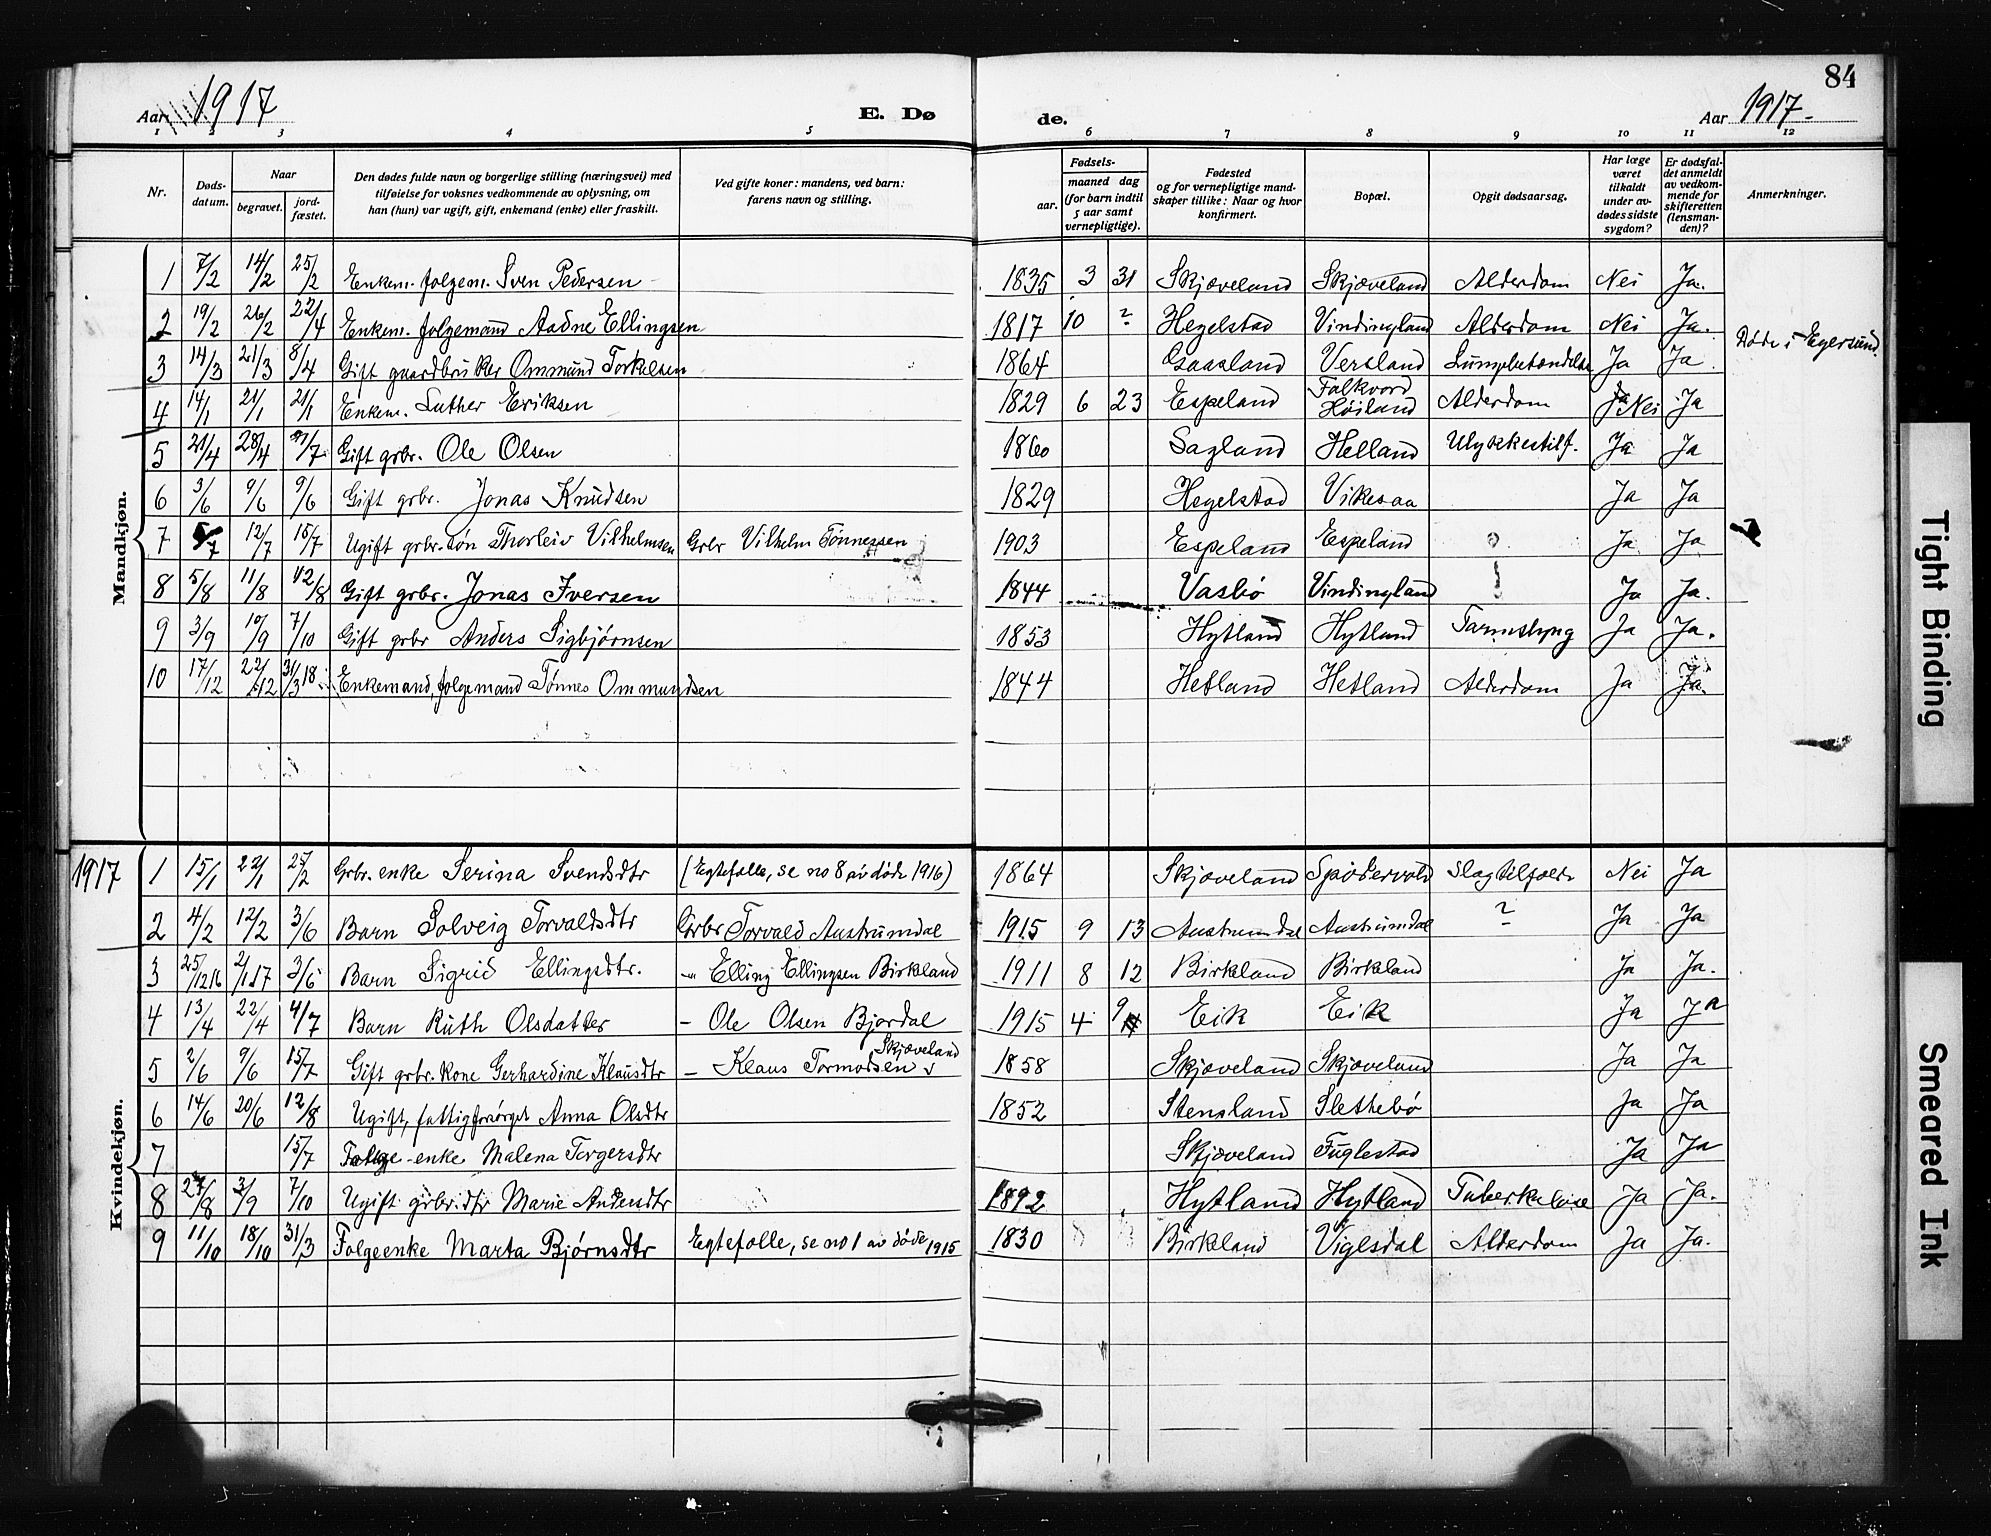 84
Aar 1917 E. Dø de. Aar 1917.
1 2 3 4 5 6 7 8 9 10 11 12
Nr. Døds-datum. Naar begravet. jord-fæstet. Den dødes fulde navn og borgerlige stilling (næringsvei) med tilføielse for voksnes vedkommende av oplysning, om han (hun) var ugift, gift, enkemand (enke) eller fraskilt. Ved gifte koner: mandens, ved barn: farens navn og stilling. Fødsels- aar. maaned dag (for barn indtil 5 aar samt vernepligtige). Fødested og for vernepligtige mand-skaper tillike: Naar og hvor konfirmert. Bopæl. Opgit dødsaarsag. Har læge været tilkaldt under av-dødes sidste sygdom? Er dødsfal-det anmeldt av vedkom-mende for skifteretten (lensman-den)? Anmerkninger.
Mandkjøn.
1 7/2 14/2 25/2 Enkem. folgem. Sven Pedersen 1835 3 31 Skjæveland Skjæveland Alderdom Nei Ja.
2 19/2 26/2 22/4 Enkem. folgemand Aadne Ellingsen 1817 10 ? Hegelstad Vindingland Alderdom Nei Ja.
3 14/3 21/3 8/4 Gift gaardbruker Ommund Torkelsen 1864 Gaasland Versland Lungebetændelse Ja Ja. Døde i Egersund.
4 14/1 21/1 21/1 Enkem. Luther Eriksen 1829 6 23 Espeland Folkvord Høiland Alderdom Nei Ja
5 21/4 28/4 /7 Gift grbr. Ole Olsen 1860 Sagland Helland Ulykkestilf. Ja Ja
6 3/6 9/6 9/6 Gift grbr. Jonas Knudsen 1829 Hegelstad Vikesaa Ja Ja
7 5/7 12/7 15/7 Ugift grbr. søn Thorleiv Vilhelmsen Grbr Vilhelm Tønnessen 1903 Espeland Espeland Ja Ja
8 5/8 11/8 12/8 Gift grbr. Jonas Iversen 1844 Vasbø Vindingland Ja Ja.
9 3/9 10/9 7/10 Gift grbr Anders Sigbjørnsen 1853 Hytland Hytland Tarmslyng Ja Ja.
10 17/12 22/12 31/3 18. Enkemand, folgemand Tønnes Ommundsen 1844 Hetland Hetland Alderdom Ja Ja.
1917
Kvindekjøn.
1 15/1 22/1 25/2 Grbr. enke Serina Svendsdtr (Egtefælle, se no 8 av døde 1916) 1864 Skjæveland Spødervold Slagtilfælde Nei Ja
2 4/2 12/2 3/6 Barn Solveig Torvaldsdtr Grbr Torvald Austrumdal 1915 9 13 Austrumdal Austrumdal ? Ja Ja
3 25/12 16 2/1 17 3/6 Barn Sigrid Ellingsdtr. -"- Elling Ellingsen Birkeland 1911 8 12 Birkeland Birkeland Ja Ja.
4 13/4 22/4 4/7 Barn Ruth Olsdatter - Ole Olsen Bjordal 1915 4 9 Eik Eik Ja Ja
5 2/6 9/6 15/7 Gift grbr. kone Gerhardine Klausdtr - Klaus Tormodsen Skjæveland 1858 Skjæveland Skjæveland Ja Ja
6 14/6 20/6 12/8 Ugift, fattigforsørget Anna Olsdtr 1852 Stensland Slettebø Ja Ja
7 15/7 Folge-enke Malena Torgersdtr Skjæveland Fuglestad Ja Ja
8 27/8 3/9 7/10 Ugift grbr.dtr Marie Andersdtr 1892 Hytland Hytland Tuberkulose Ja Ja.
9 11/10 18/10 31/3 Folgeenke Marta Bjørnsdtr Egtefælle, se no 1 av døde 1915 1830 Birkeland Viglsdal Alderdom Ja Ja.
Tight Binding
Smeared Ink